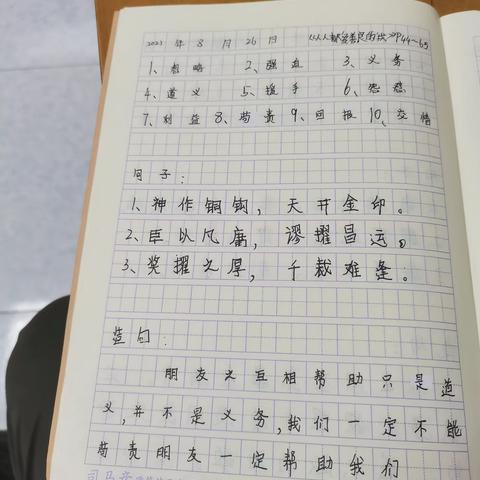 2023 年 8 月 26 日 P44~65
1、忽略 2、强迫 3、义务
4、道义 5、援手 6、怨怼
7、利益 8、苛责 9、回报 10、交情
句子：
1、神作铜钩，天开金印。
2、臣以凡庸，谬擢昌运。
3、奖擢之厚，千载难逢。
造句：
朋友之互相帮助只是道
义，并不是义务，我们一定不能
苛责朋友一定帮助我们